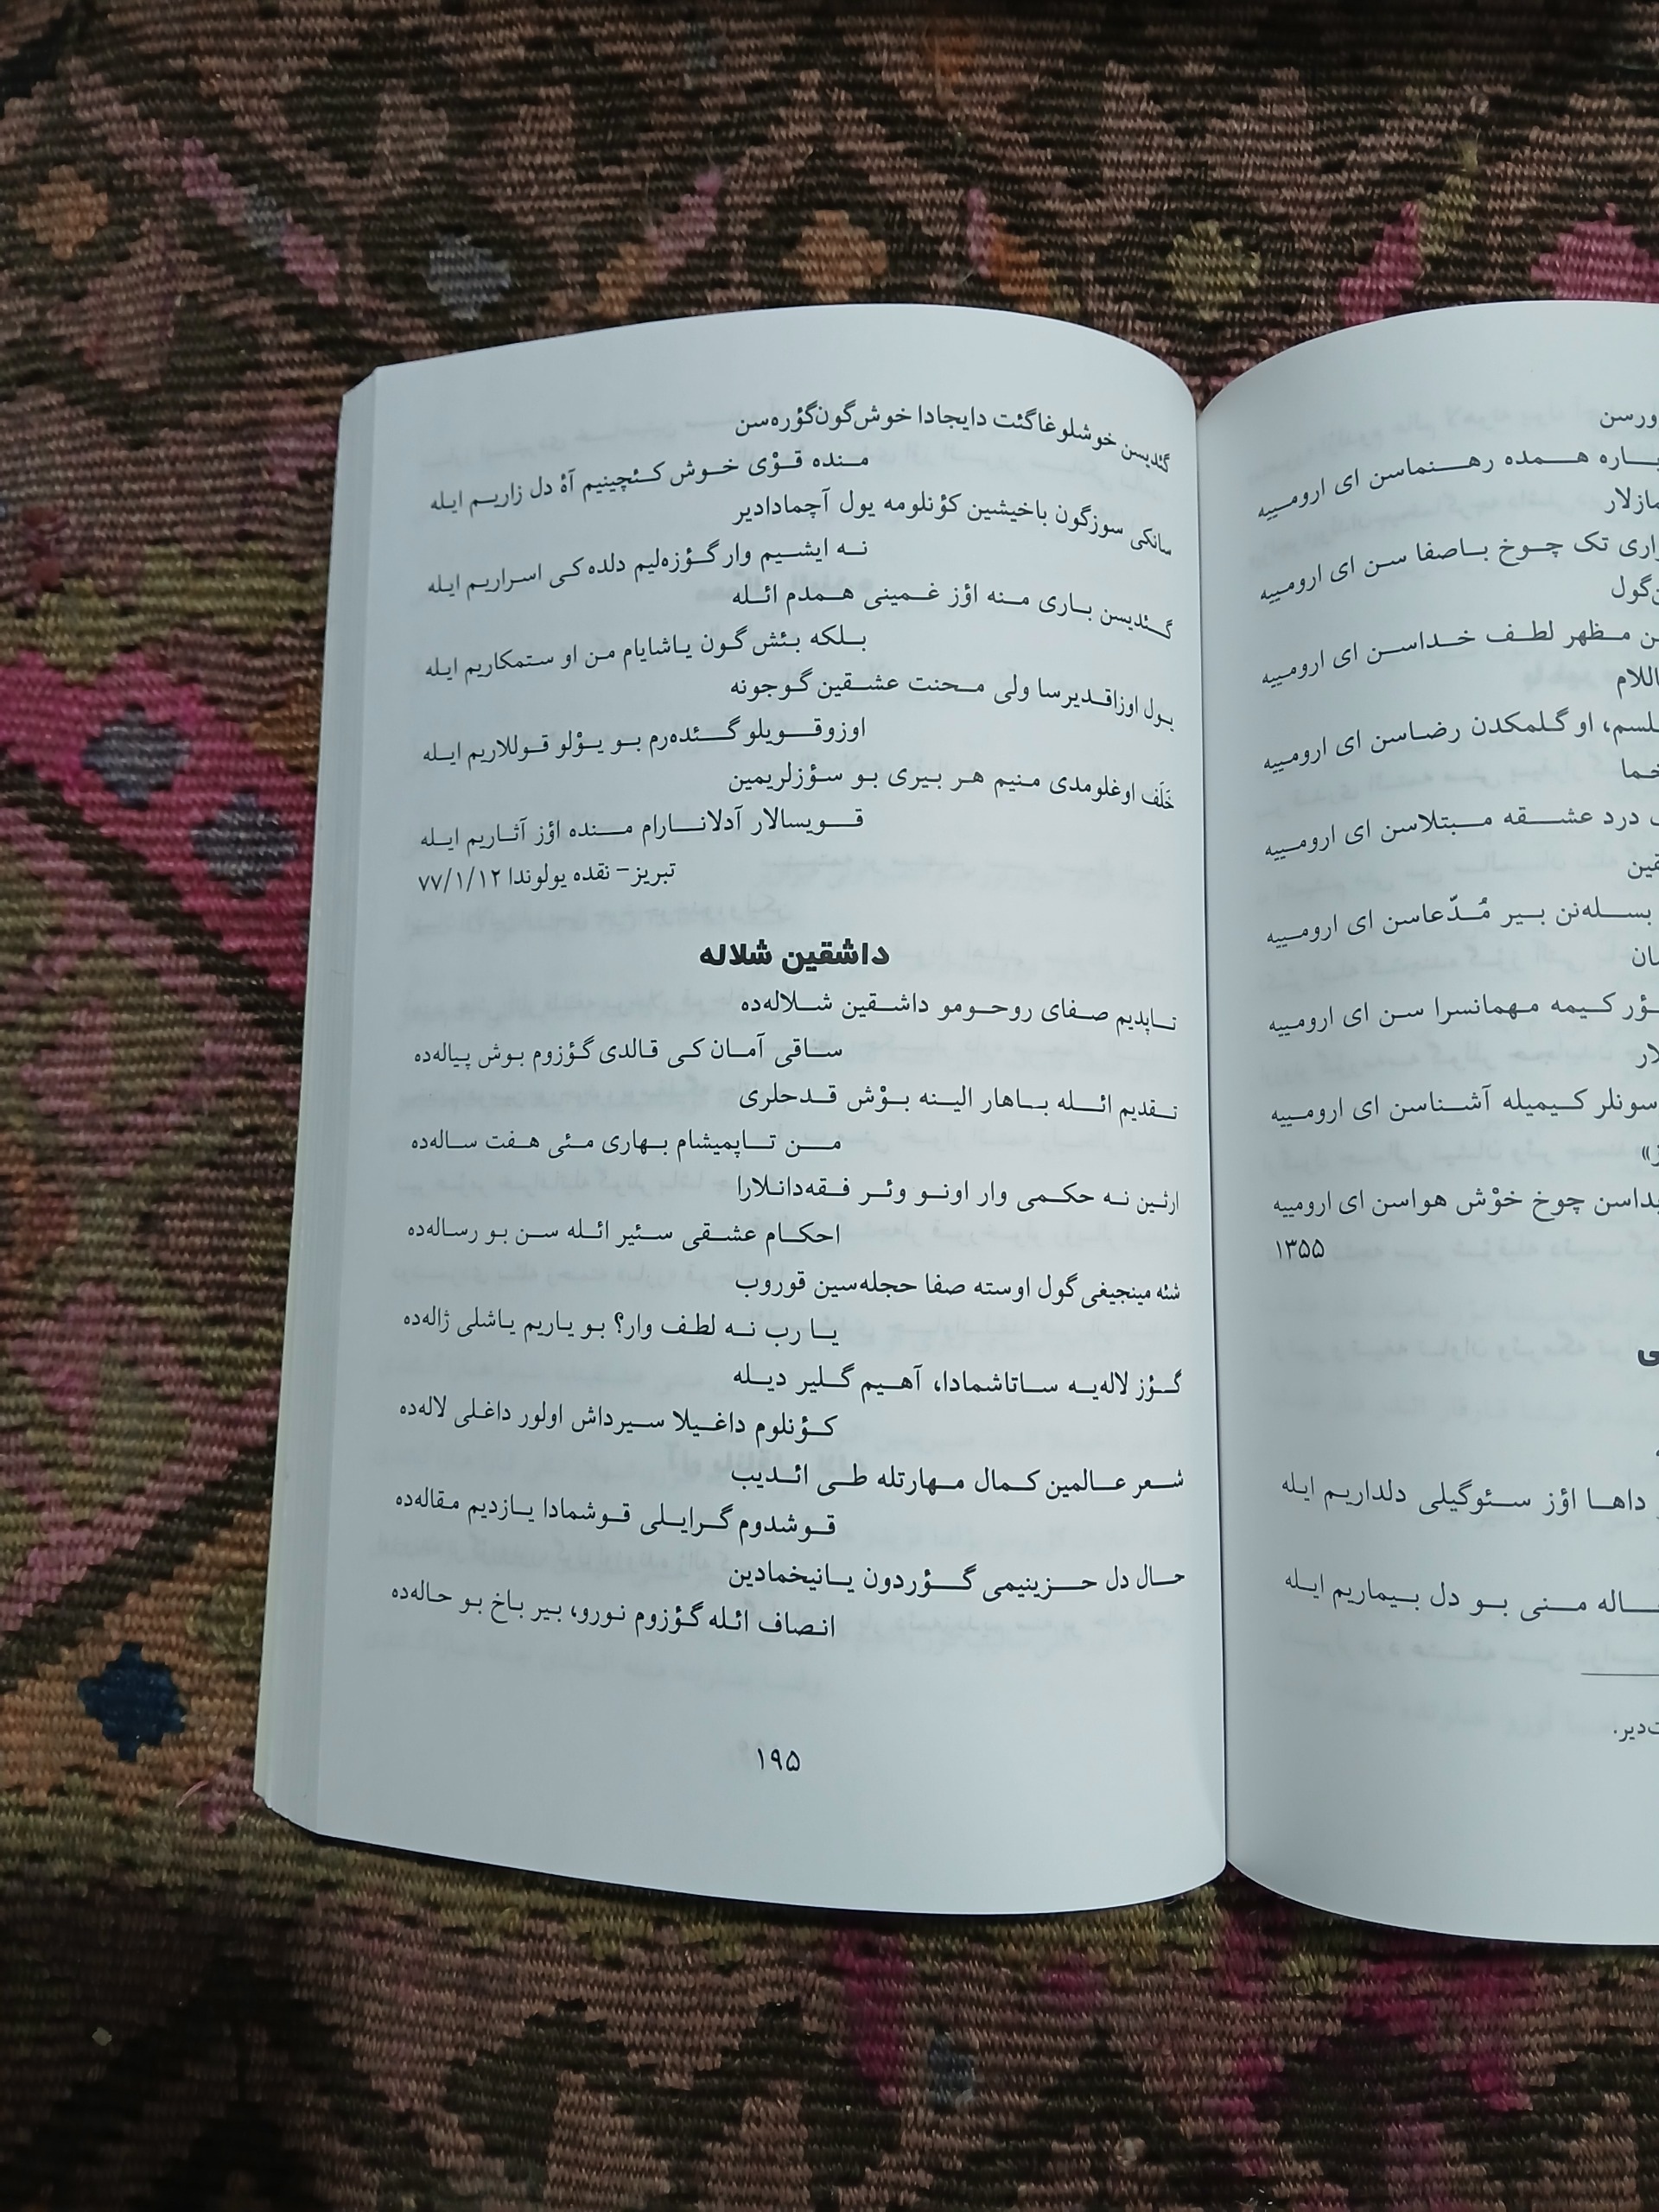 ورسن
باره همده رهنماسن ای ارومییه
مازلار
زاری تک چوخ باصفا سن ای ارومییه
گول
ن مظهر لطف خداسن ای ارومییه
اللام
لسم، او گلمکدن رضاسن ای ارومییه
خما
درد عشقه مبتلاسن ای ارومییه
قین
بسله‌نن بیر مُدّعاسن ای ارومییه
ان
ؤر کیمه مهمانسرا سن ای ارومییه
لار
سونلر کیمیله آشناسن ای ارومییه
ز»
یداسن چوخ خوْش هواسن ای ارومییه
۱۳۵۵
ی
داها اؤز سئوگیلی دلداریم ایله
اله منی بو دل بیماریم ایله
ت‌دیر.
گئدیسن خوشلوغا گئت دایجادا خوش‌گون گؤره‌سن
منده قوْی خوش کئچینیم آهٔ دل زاریم ایله
سانکی سوزگون باخیشین کؤنلومه یول آچمادادیر
نه ایشیم وار گؤزه‌لیم دلده کی اسراریم ایله
گئدیسن باری منه اؤز غمینی همدم ائله
بلکه بئش گون یاشایام من او ستمکاریم ایله
یول اوزاقدیرسا ولی محنت عشقین گوجونه
اوزوقویلو گئده‌رم بو یوْلو قوللاریم ایله
خَلَف اوغلومدی منیم هر بیری بو سؤزلریمین
قویسالار آدلانارام منده اؤز آثاریم ایله
تبریز– نقده یولوندا ۷۷/۱/۱۲
داشقین شلاله
تاپدیم صفای روحومو داشقین شلاله‌ده
ساقی آمان کی قالدی گؤزوم بوش پیاله‌ده
تقدیم ائله باهار الینه بوْش قدحلری
من تاپمیشام بهاری مئی هفت ساله‌ده
ارثین نه حکمی وار اونو وئر فقه‌دانلارا
احکام عشقی سئیر ائله سن بو رساله‌ده
شئه مینجیغی گول اوسته صفا حجله‌سین قوروب
یا رب نه لطف وار؟ بو یاریم یاشلی ژاله‌ده
گؤز لاله‌یه ساتاشمادا، آهیم گلیر دیله
کؤنلوم داغیلا سیرداش اولور داغلی لاله‌ده
شعر عالمین کمال مهارتله طی ائدیب
قوشدوم گرایلی قوشمادا یازدیم مقاله‌ده
حال دل حزینیمی گؤردون یانیخمادین
انصاف ائله گؤزوم نورو، بیر باخ بو حاله‌ده
۱۹۵